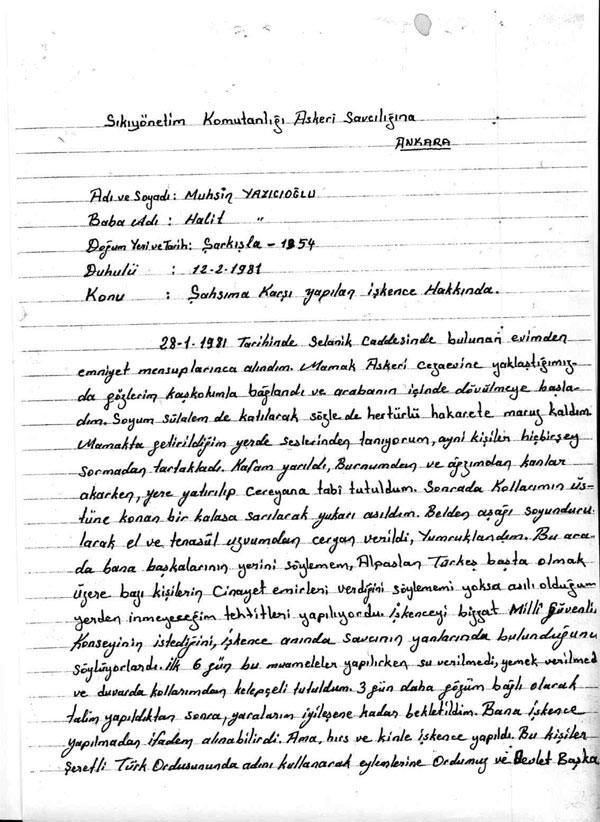 Sıkıyönetim Komutanlığı Askeri Savcılığına
ANKARA
Adı ve Soyadı: Muhsin YAZICIOĞLU
Baba Adı : Halit "
Doğum Yeri ve Tarih: Şarkışla - 1954
Duhulü : 12-2-1981
Konu : Şahsıma Karşı yapılan işkence Hakkında.
28-1-1981 Tarihinde Selanik Caddesinde bulunan evimden
emniyet mensuplarınca alındım. Mamak Askeri Cezaevine yaklaştığımız-
da gözlerim kaşkolumla bağlandı ve arabanın içinde dövülmeye başla-
dım. Soyum sülalem de katılacak sözle de hertürlü hakarete maruz kaldım
Mamakta getirildiğim yerde seslerinden tanıyorum, ayni kişiler hiçbirşey
sormadan tartakladı. Kafam yarıldı, Burnumdan ve ağzımdan kanlar
akarken, yere yatırılıp Cereyana tabî tutuldum. Sonrada Kollarımın üs-
tüne konan bir kalasa sarılarak yukarı asıldım. Belden aşağı soyunduru-
larak el ve tenasül uzvumdan ceryan verildi, Yumruklandım. Bu ara-
da bana başkalarının yerini söylemem, Alpaslan Türkeş başta olmak
üzere bazı kişilerin Cinayet emirleri verdiğini söylememi yoksa asılı olduğum
yerden inmeyeceğim tehtitleri yapılıyordu. İşkenceyi bizzat Milli Güvenlik
Konseyinin istediğini, işkence anında savcının yanlarında bulunduğunu
söylüyorlardı. İlk 6 gün bu muameleler yapılırken su verilmedi, yemek verilmed
ve duvarda kollarımdan kelepçeli tutuldum. 3 gün daha gözüm bağlı olarak
talim yapıldıktan sonra, yaralarım iyileşene kadar bekletildim. Bana işkence
yapılmadan ifadem alınabilirdi. Ama, hırs ve kinle işkence yapıldı. Bu kişiler
Şerefli Türk Ordusununda adını kullanarak eylemlerine Ordumuz ve Devlet Başka